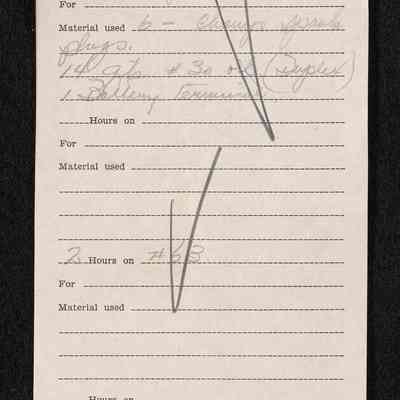 For
Material used 6 - Champ spark
plugs.
14 qts #30 oil (Duplex)
1 Battery Terminal
Hours on
For
Material used
2 Hours on #53
For
Material used
Hours on